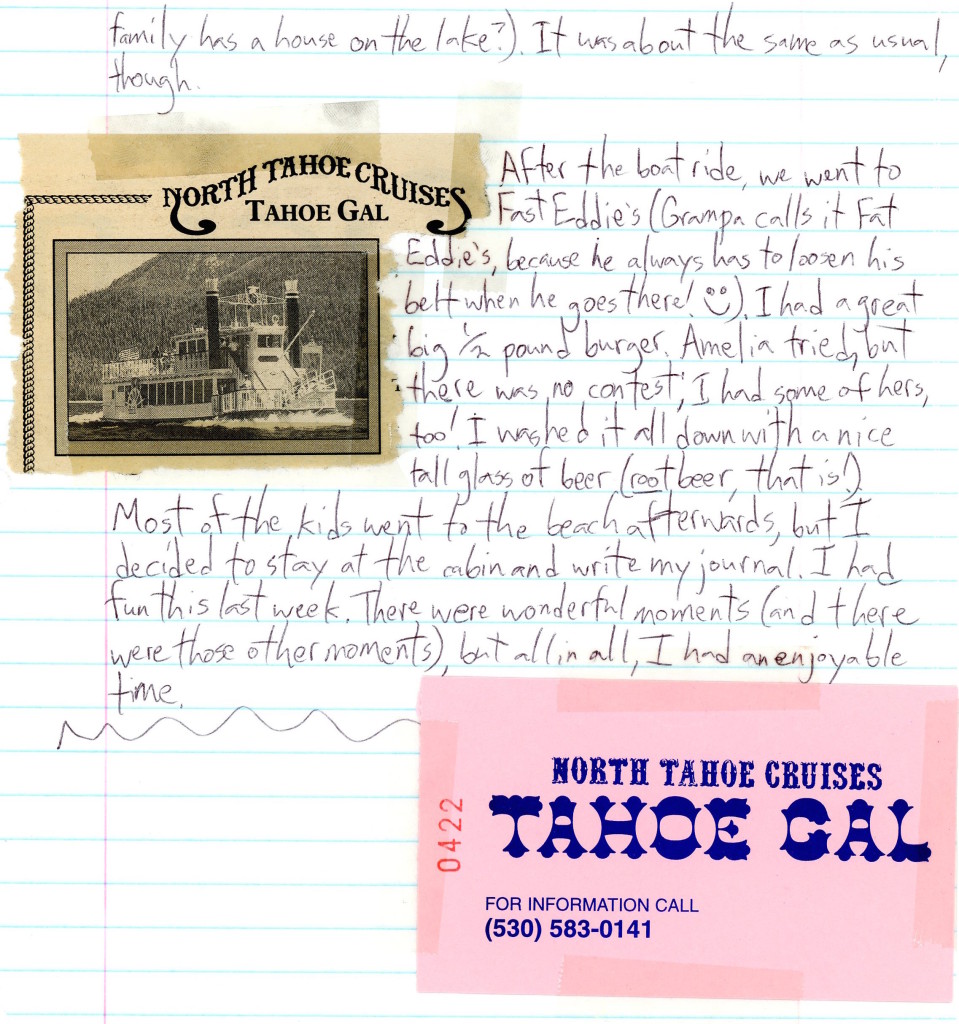 family has a house on the lake?). It was about the same as usual,
though.
NORTH TAHOE CRUISES
TAHOE GAL
After the boat ride, we went to
Fast Eddie's (Grampa calls it Fat
Eddie's, because he always has to loosen his
belt when he goes there! ☺). I had a great
big 1/2 pound burger. Amelia tried, but
there was no contest; I had some of hers,
too! I washed it all down with a nice
tall glass of beer (root beer, that is!)
Most of the kids went to the beach afterwards, but I
decided to stay at the cabin and write my journal. I had
fun this last week. There were wonderful moments (and there
were those other moments), but all in all, I had an enjoyable
time.
NORTH TAHOE CRUISES
TAHOE GAL
0422
FOR INFORMATION CALL
(530) 583-0141